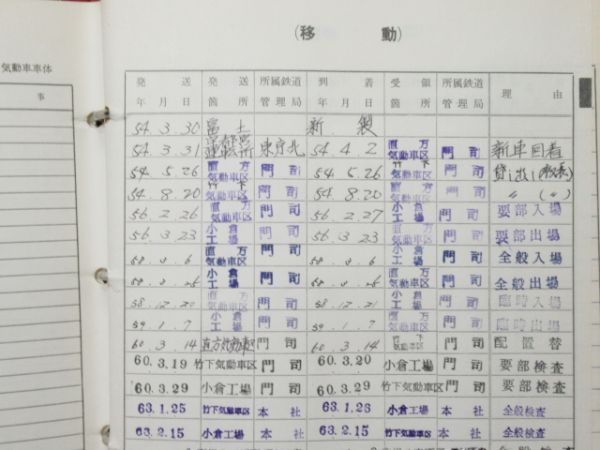 (移 動)
気動車車体
事
発 送 発 送 所属鉄道 到 着 受 領 所属鉄道 理 由
年 月 日 箇 所 管理局 年 月 日 箇 所 管理局
54. 3. 30 富士 新製
54. 3. 31 東京北 54. 4. 2 直方気動車区 門司 新車回着
54. 5. 26 直方気動車区 門司 54. 5. 26 竹下 門司 貸渡し
54. 8. 20 竹下 門司 54. 8. 20 直方気動車区 門司 〃 (〃)
56. 2. 26 直方気動車区 門司 56. 2. 27 小倉工場 門司 要部入場
56. 3. 23 小倉工場 門司 56. 3. 23 直方気動車区 門司 要部出場
58. 3. 6 直方気動車区 門司 58. 3. 6 小倉工場 門司 全般入場
58. 3. 26 小倉工場 門司 58. 3. 26 直方気動車区 門司 全般出場
58. 12. 21 直方気動車区 門司 58. 12. 21 小倉工場 門司 臨時入場
59. 1. 7 小倉工場 門司 59. 1. 7 直方気動車区 門司 臨時出場
60. 3. 14 直方気動車区 門司 60. 3. 14 竹下気動車区 門司 配置替
60. 3. 19 竹下気動車区 門司 60. 3. 20 小倉工場 門司 要部検査
60. 3. 29 小倉工場 門司 60. 3. 29 竹下気動車区 門司 要部検査
63. 1. 25 竹下気動車区 本社 63. 1. 26 小倉工場 本社 全般検査
63. 2. 15 小倉工場 本社 63. 2. 15 竹下気動車区 本社 全般検査